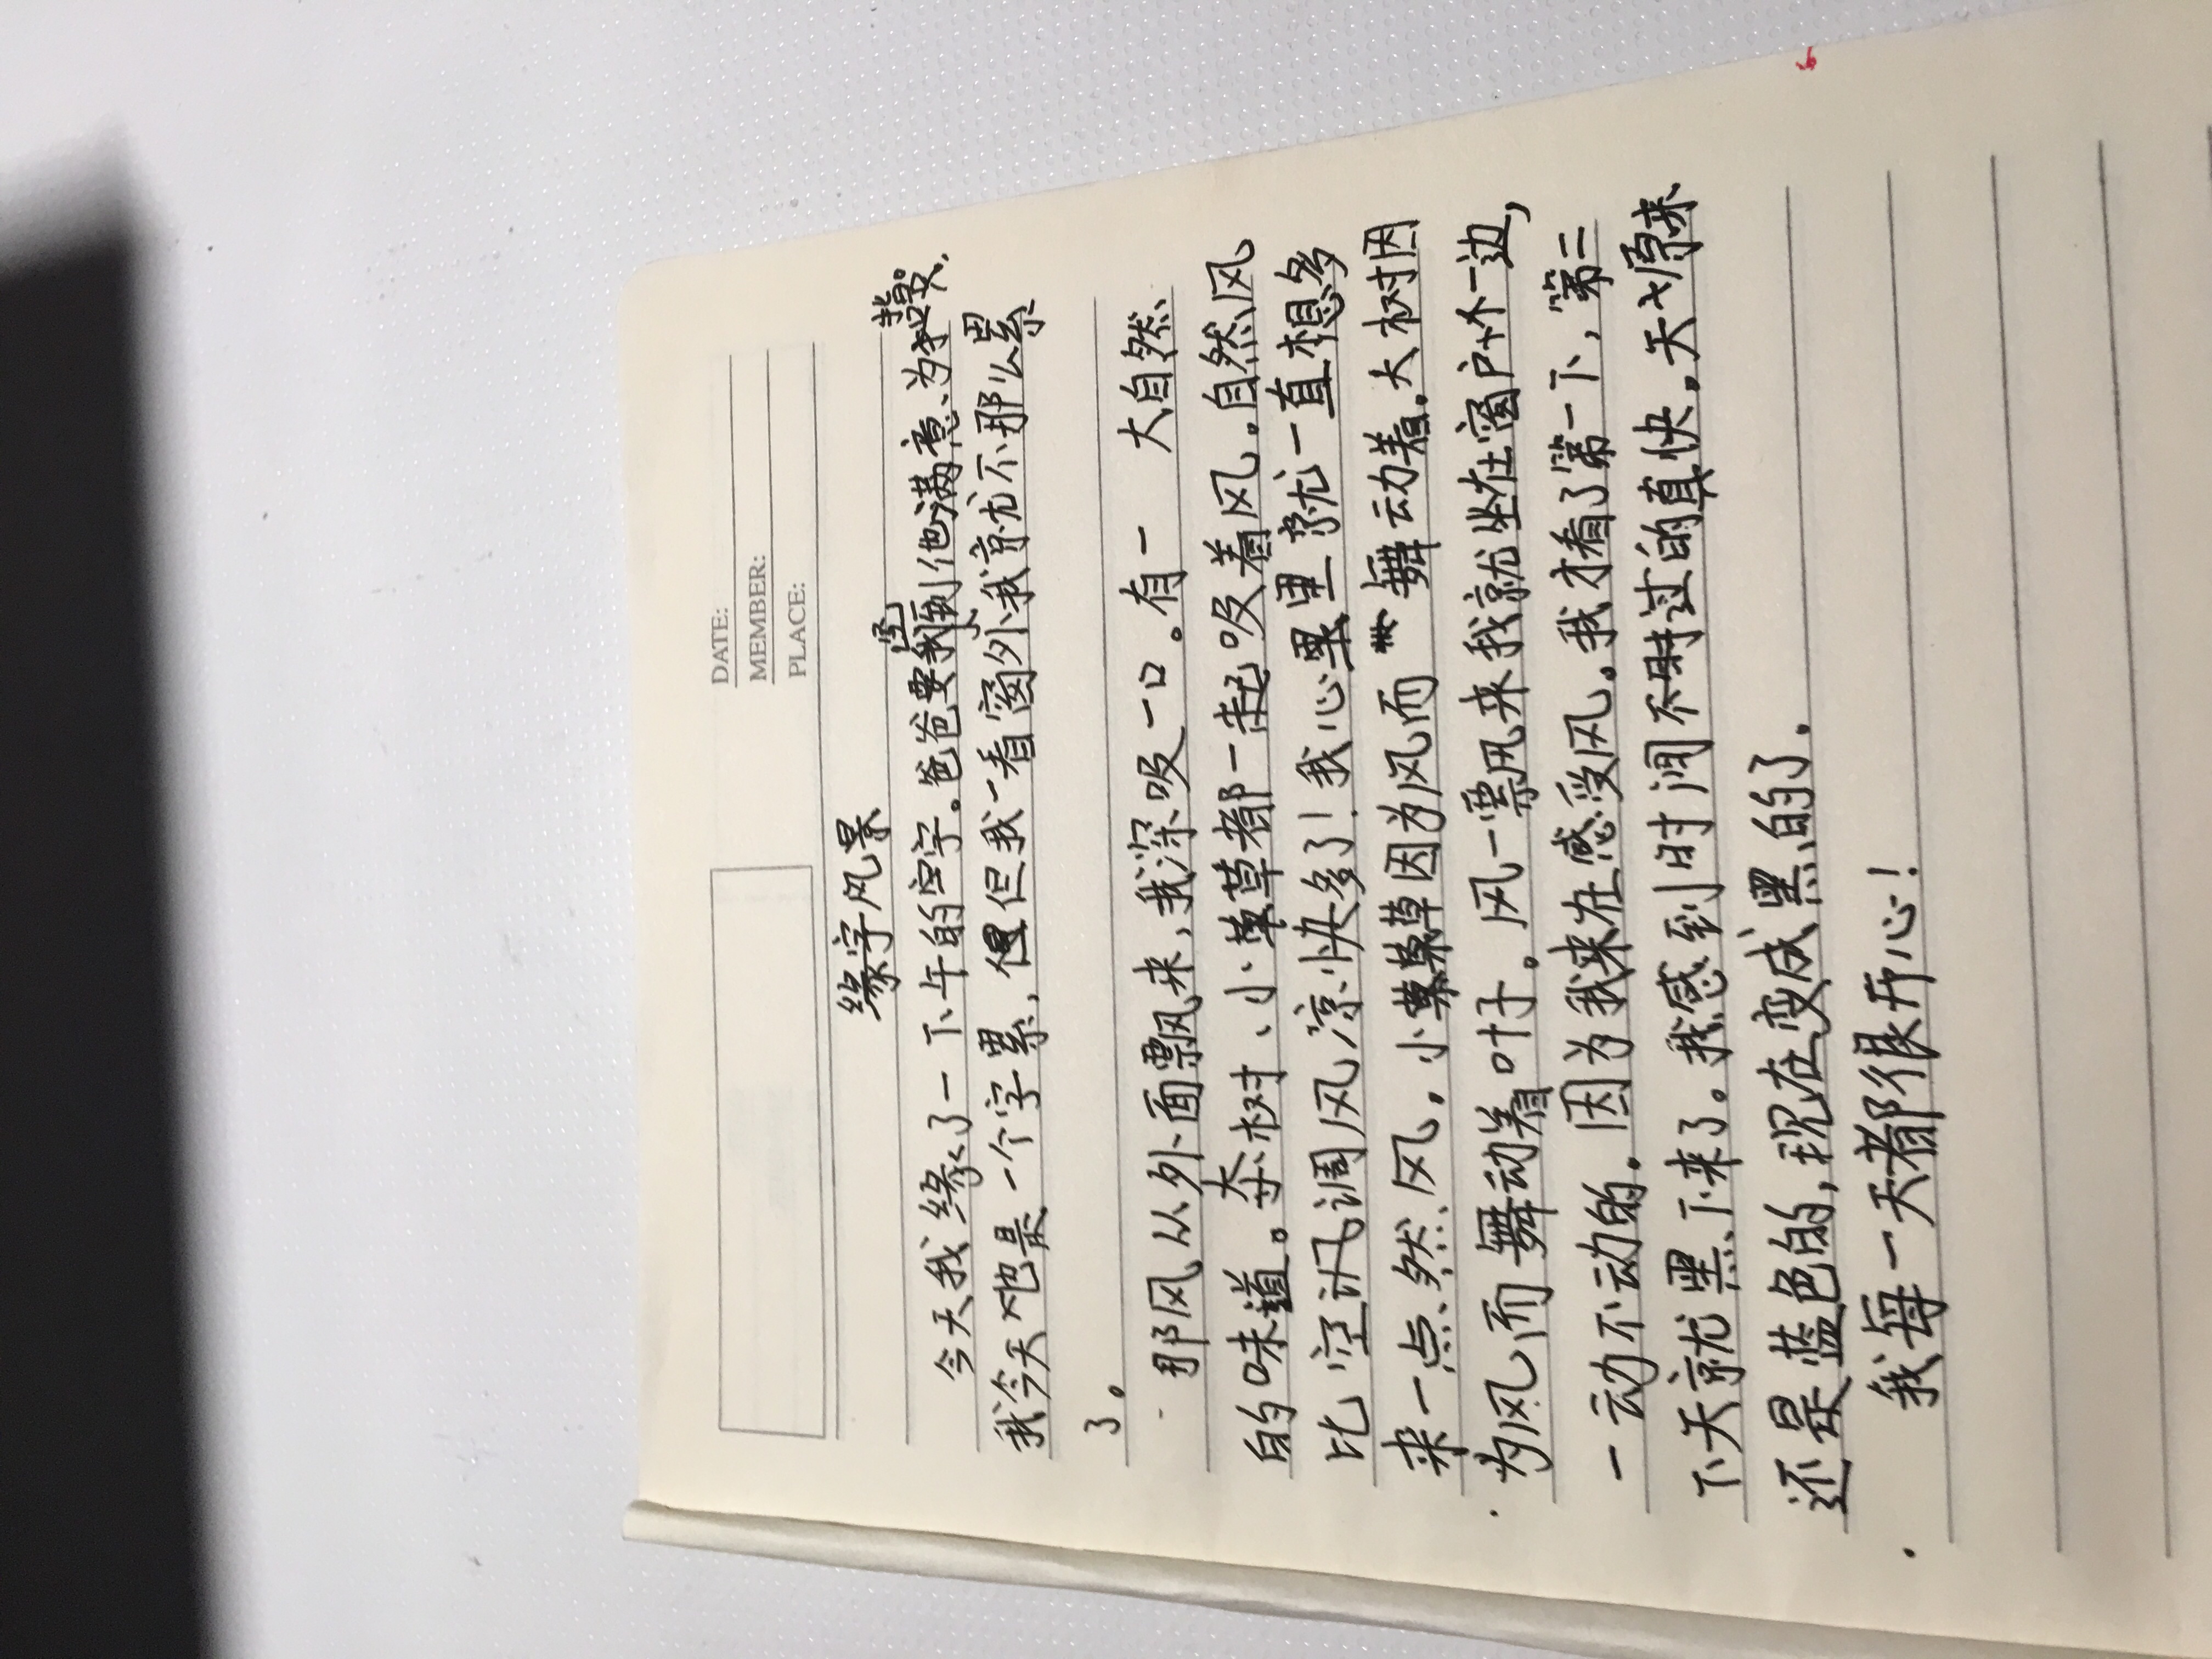 DATE:
MEMBER:
PLACE:
缘字风景
今天我缘了一下午的字。爸爸要我写到他满意、为
我今天也是一个字累、但我一看窗外我就不那么累
了。
那风从外面飘来，我深吸一口。有一 大自然
的味道。大树、小草都一起吸着风。自然风
比空调风凉快多了！我心里就一直想多
来一点然风。小草因为风而舞动着。大树因
为风而舞动着叶子。风一飘来我就坐在窗户外一边，
一动不动的。因为我来在感受风。我才看了第一下，第二
下天就黑下来了。我感到时间过的真快。天原来
还是蓝色的，现在变成黑的了。
我每一天都很开心！